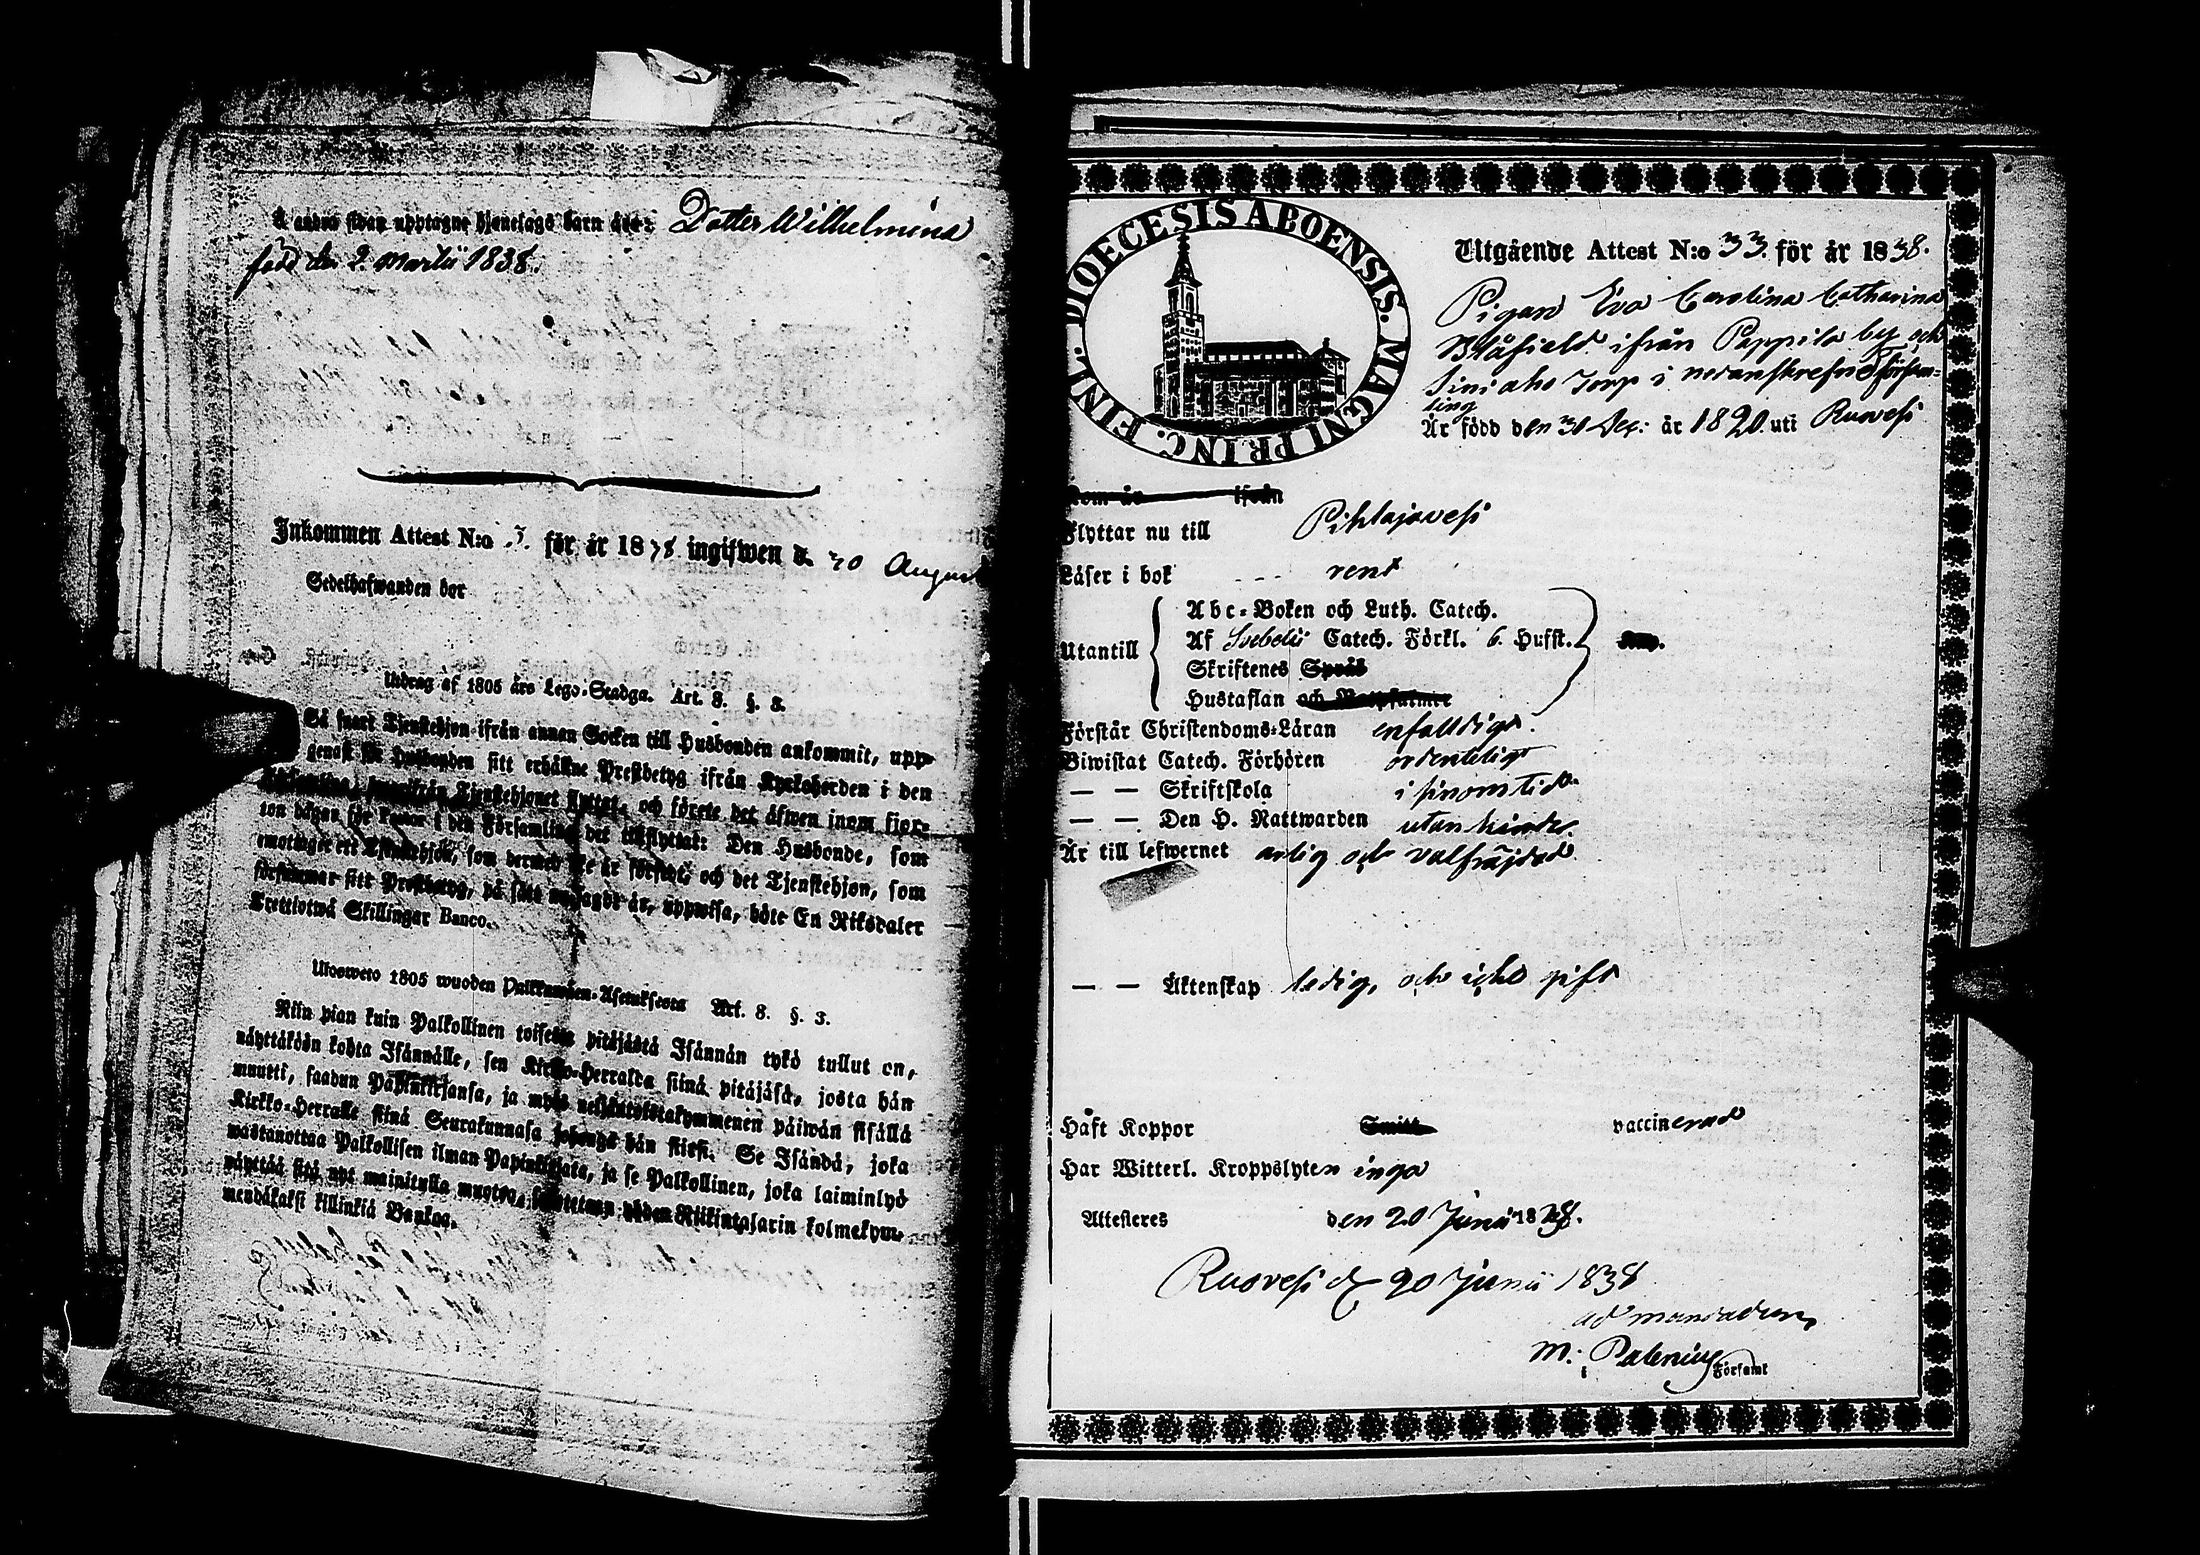 å andra sidan upptagne hjonelags barn äro: Dotter Wilhelmina
född den 2. Martii 1838.
Inkommen Attest N:o 3. för år 1838 ingifwen d. 30 August
Sedelhafwanden bor
Utdrag af 1805 års Lego-Stadga. Art. 8. §. 3.
Så snart Tjenstehjon ifrån annan Socken till Husbonden ankommit, upp-
genast för Husbonden sitt erhållne Prestbetyg ifrån Kyrkoherden i den
Församling, hwarifrån Tjenstehjonet flyttat, och förete det äfwen inom fjor-
ton dagar för Pastor i den Församling det tillflyttat: Den Husbonde, som
emottager ett Tjenstehjon, som dermed icke är försedt, och det Tjenstehjon, som
försummar sitt Prestbetyg, på sätt nu sagdt är, uppwisa, böte En Riksdaler
Trettiotwå Skillingar Banco.
Ulosweto 1805 wuoden Palkkawäen-Asetuksesta Art. 8. §. 3.
Niin pian kuin Palkollinen toisesta pitäjästä Isännän tykö tullut on,
näyttäköön kohta Isännälle, sen Kirkko-Herralda siinä pitäjäsä, josta hän
muutti, saadun Papinkirjansa, ja myös neljäntoistakymmenen päiwän sisällä
Kirkko-Herralle siinä Seurakunnasa johonga hän siirsi. Se Isändä, joka
wastanottaa Palkollisen ilman Papinkirjata, ja se Palkollinen, joka laiminlyö
näyttää sitä nyt mainitulla muotoa, sakotetaan yhden Riikintalarin kolmekym-
mendäkaksi killinkiä Bankos.
DIOECESIS ABOENSIS. MAGNI PRINC. FINL.
Utgående Attest N:o 33. för år 1838.
Pigan Eva Carolina Catharina
Blåfield ifrån Pappila by och
Siniaho Torp i nedanskrefne Försam-
ling
Är född den 30 Dec: år 1820. uti Ruovesi
Kom år ifrån
Flyttar nu till Pihlajavesi
Läser i bok rent
Utantill
Abc-Boken och Luth. Catech.
Af Svebelii Catech. Förkl. 6. Hufst.
Skriftenes Språk
Hustaflan och
Förstår Christendoms-Läran enfaldigt.
Biwistat Catech. Förhören ordenteligt
— — Skriftskola i sinom tid
— — Den H. Nattwarden utan hinder.
Är till lefwernet ärlig och välfräjdad
— — Äktenskap ledig, och icke gift
Haft Koppor Smitt vaccinerad
Har Witterl. Kroppslyten inga
Attesteres den 20 Junii 1838.
Ruovesi d 20 Junii 1838
ad mandatum
M: Palenius
i Församl